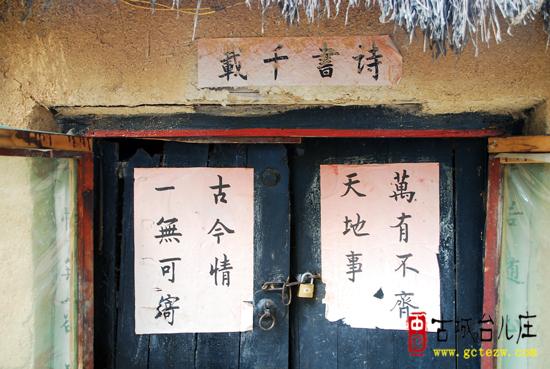 诗書千載
萬有不齊
天地事
古今情
一無可寄
古城台儿庄
www.gctezw.com